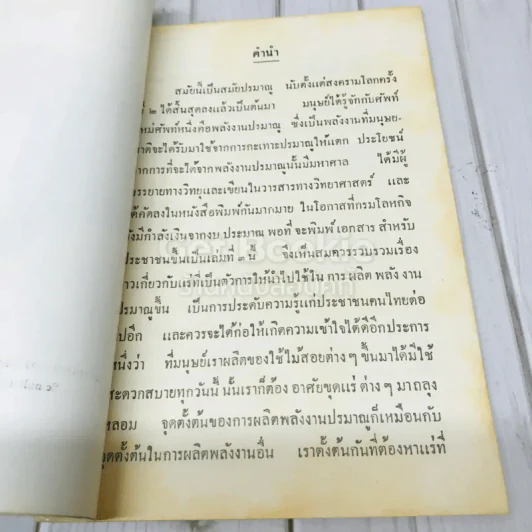 คำนำ
สมัยนี้เป็นสมัยปรมาณู นับตั้งแต่สงครามโลกครั้ง
ที่ ๒ ได้สิ้นสุดลงแล้วเป็นต้นมา มนุษย์ได้รู้จักกับศัพท์
ใหม่ศัพท์หนึ่งคือพลังงานปรมาณู ซึ่งเป็นพลังงานที่มนุษย-
ชาติจะได้รับมาใช้จากการกะเทาะปรมาณูให้แตก ประโยชน์
จากการที่จะได้จากพลังงานปรมาณูนั้นมีมหาศาล ได้มีผู้
บรรยายทางวิทยุและเขียนในวารสารทางวิทยาศาสตร์ และ
ได้คัดลงในหนังสือพิมพ์กันมากมาย ในโอกาสที่กรมโลหกิจ
ยังมีกำลังเงินจากงบประมาณ พอที่จะพิมพ์เอกสาร สำหรับ
ประชาชนขึ้นเป็นเล่มที่ ๓ นี้ จึงเห็นสมควรรวบรวมเรื่อง
ราวเกี่ยวกับแร่ที่เป็นตัวการให้นำไปใช้ใน การ ผลิต พลัง งาน
ปรมาณูขึ้น เป็นการประดับความรู้แก่ประชาชนคนไทยต่อ
ไปอีก และควรจะได้ก่อให้เกิดความเข้าใจได้ดีอีกประการ
หนึ่งว่า ที่มนุษย์เราผลิตของใช้ไม้สอยต่าง ๆ ขึ้นมาได้มีใช้
สะดวกสบายทุกวันนี้ นั้นเราก็ต้อง อาศัยขุดแร่ ต่าง ๆ มา ถลุง
หลอม จุดตั้งต้นของการผลิตพลังงานปรมาณูก็เหมือนกับ
จุดตั้งต้นในการผลิตพลังงานอื่น เราตั้งต้นกันที่ต้องหาแร่ที่